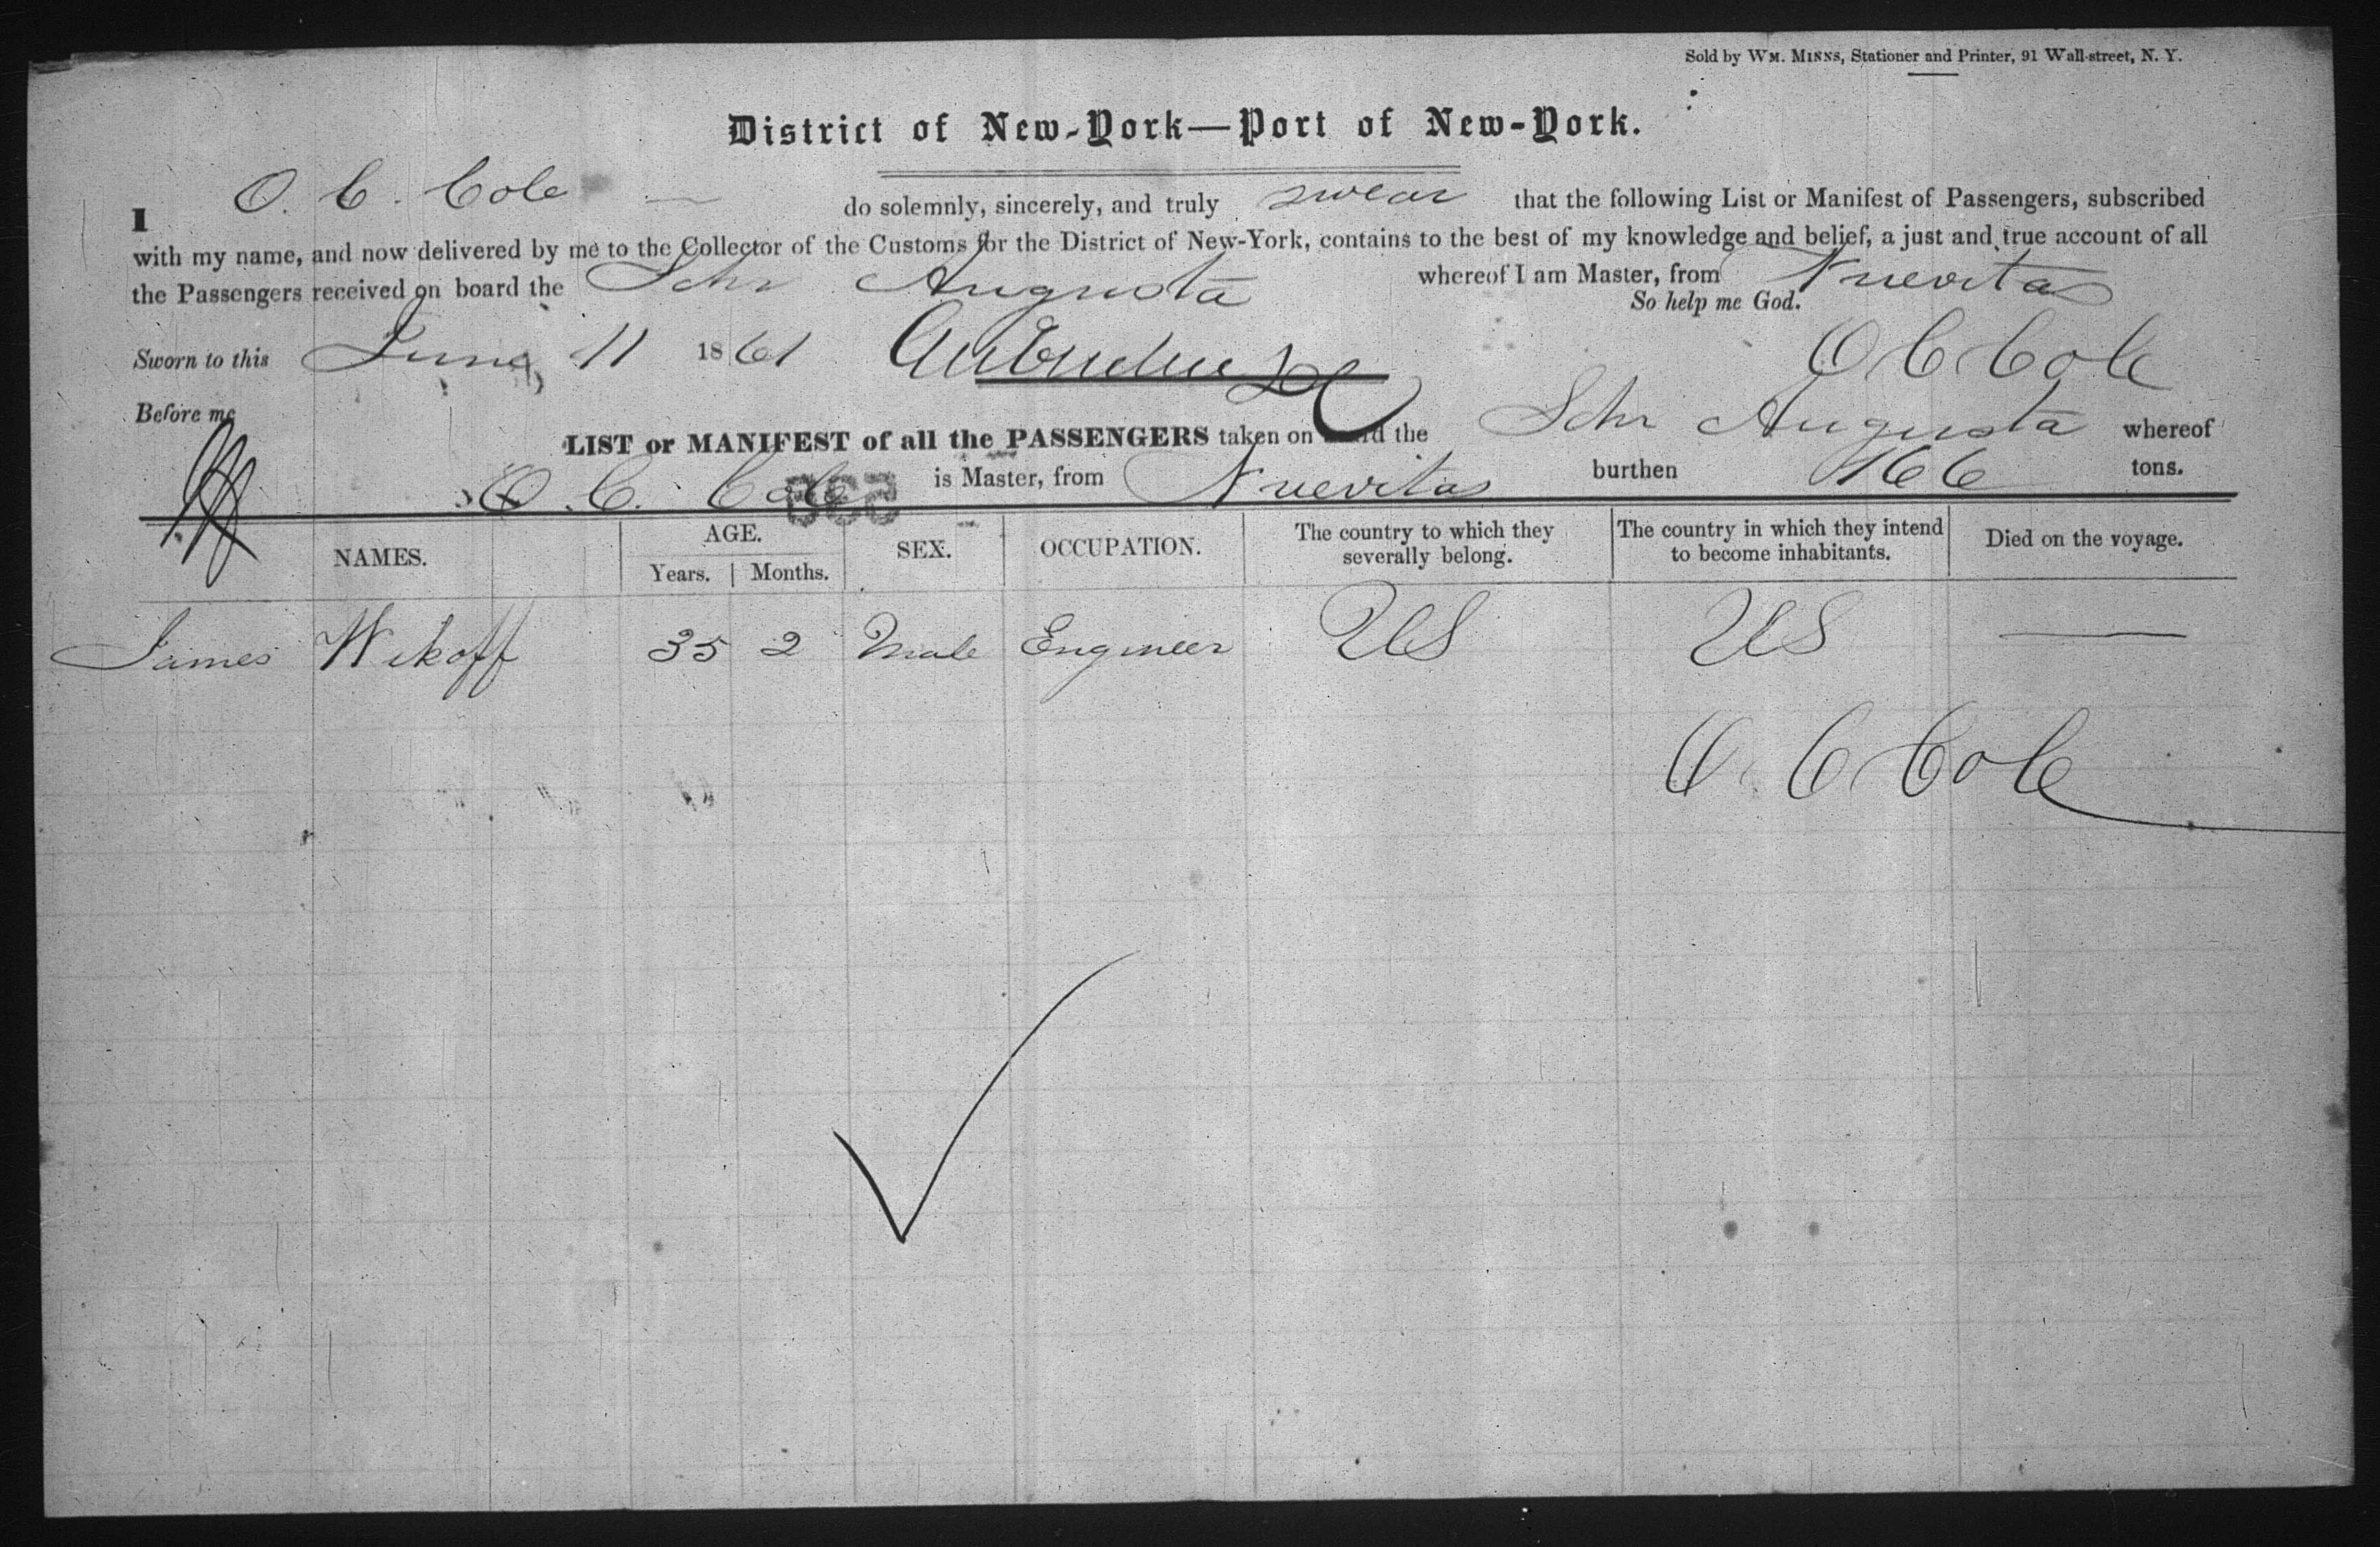 Sold by WM. MINNS, Stationer and Printer, 91 Wall-street, N. Y.
District of New-York—Port of New-York.
I O. C. Cole do solemnly, sincerely, and truly swear that the following List or Manifest of Passengers, subscribed
with my name, and now delivered by me to the Collector of the Customs for the District of New-York, contains to the best of my knowledge and belief, a just and true account of all
the Passengers received on board the Schr Augusta whereof I am Master, from Nuevitas
So help me God.
Sworn to this June 11 1861 O C Cole
Before me
LIST or MANIFEST of all the PASSENGERS taken on board the Schr Augusta whereof
O. C. Cole is Master, from Nuevitas burthen 166 tons.
NAMES. AGE. Years. Months. SEX. OCCUPATION. The country to which they severally belong. The country in which they intend to become inhabitants. Died on the voyage.
James Wikoff 35 2 Male Engineer US US —
O. C Cole